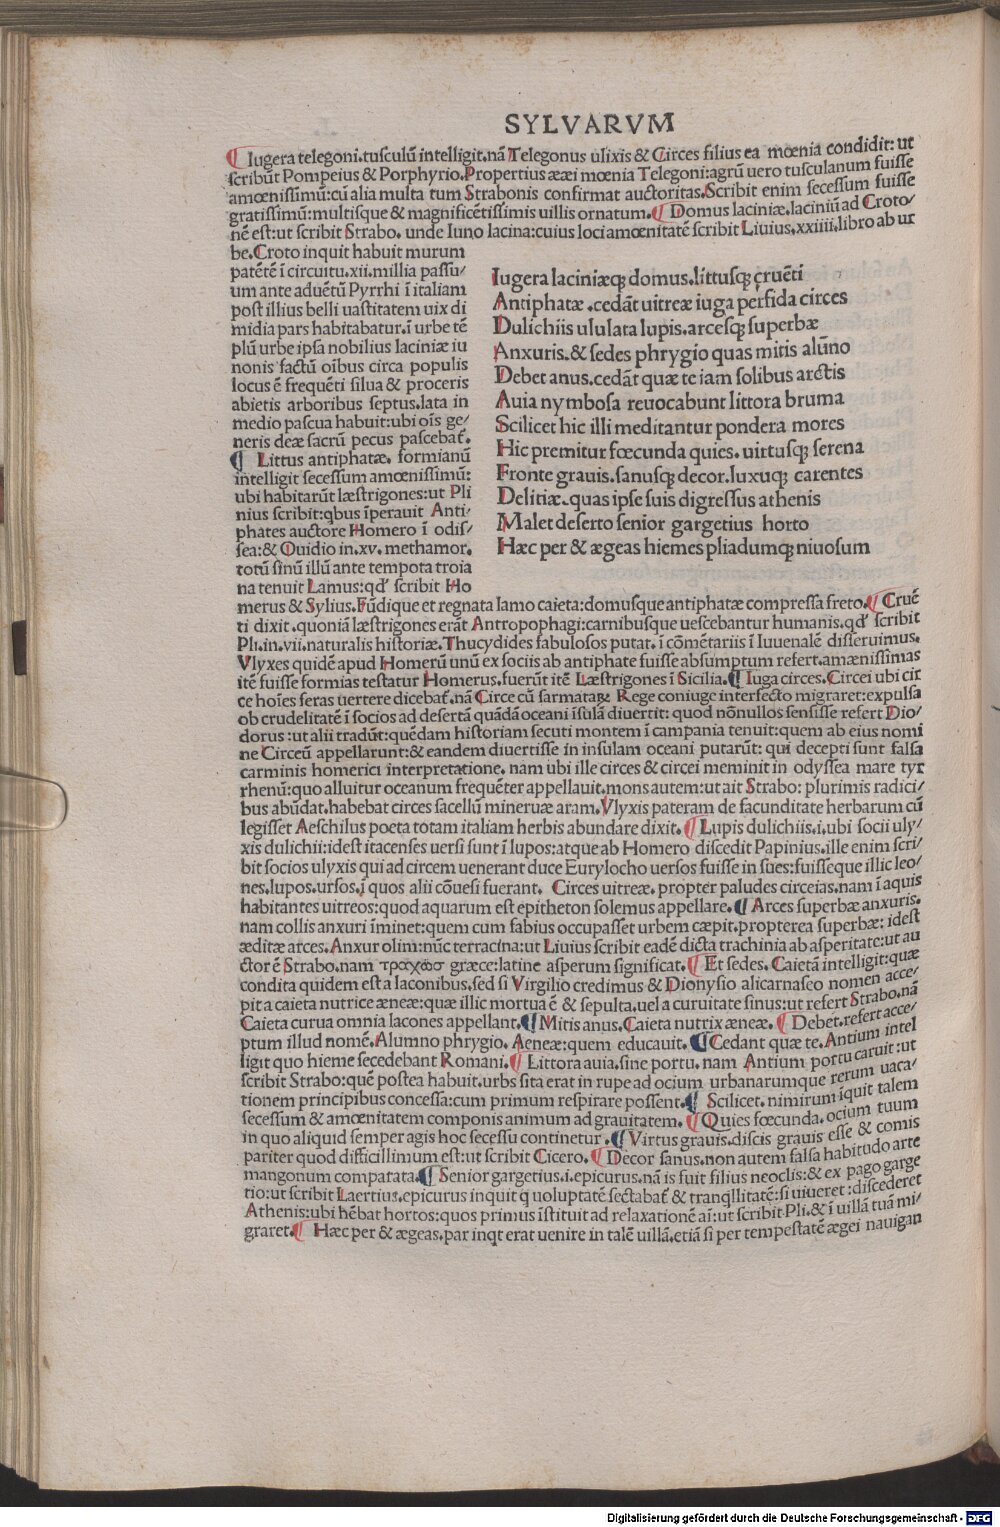 SYLVARVM
¶ Iugera telegoni.tusculū intelligit.nā Telegonus ulixis & Circes filius ea mœnia condidit: ut
scribūt Pompeius & Porphyrio.Propertius ææi mœnia Telegoni:agrū uero tusculanum fuisse
amœnissimū:cū alia multa tum Strabonis confirmat auctoritas.Scribit enim secessum fuisse
gratissimū:multisque & magnificētissimis uillis ornatum.¶ Domus laciniæ.laciniū ad Croto/
nē est:ut scribit Strabo. unde Iuno lacina:cuius loci amœnitatē scribit Liuius.xxiiii.libro ab ur
be.Croto inquit habuit murum
patētē ī circuitu.xii.millia passu/
um ante aduētū Pyrrhi ī italiam
post illius belli uastitatem uix di
midia pars habitabatur.ī urbe tē
plū urbe ipsa nobilius laciniæ iu
nonis factū oībus circa populis
locus ē frequēti silua & proceris
abietis arboribus septus.lata in
medio pascua habuit:ubi oīs ge/
neris deæ sacrū pecus pascebat̄.
¶ Littus antiphatæ. formianū
intelligit secessum amœnissimū:
ubi habitarūt læstrigones:ut Pli
nius scribit:qbus īperauit Anti/
phates auctore Homero ī odis/
sea:& Ouidio in.xv. methamor.
totū sinū illū ante tempota troia
na tenuit Lamus:qd' scribit Ho
Iugera laciniæq; domus.littusq; cruēti
Antiphatæ.cedāt uitreæ iuga perfida circes
Dulichiis ululata lupis.arcesq; superbæ
Anxuris.& sedes phrygio quas mitis alūno
Debet anus.cedāt quæ te iam solibus arctis
Auia nymbosa reuocabunt littora bruma
Scilicet hic illi meditantur pondera mores
Hic premitur fœcunda quies. uirtusq; serena
Fronte grauis.sanusq; decor.luxuq; carentes
Delitiæ.quas ipse suis digressus athenis
Malet deserto senior gargetius horto
Hæc per & ægeas hiemes pliadumq; niuosum
merus & Sylius.Fūdique et regnata lamo caieta:domusque antiphatæ compressa freto.¶ Cruē
ti dixit.quoniā læstrigones erāt Antropophagi:carnibusque uescebantur humanis.qd' scribit
Pli.in.vii.naturalis historiæ.Thucydides fabulosos putat.ī cōmētariis ī Iuuenalē disseruimus.
Vlyxes quidē apud Homerū unū ex sociis ab antiphate fuisse absumptum refert.amænissimas
itē fuisse formias testatur Homerus.fuerūt itē Læstrigones ī Sicilia.¶ Iuga circes.Circei ubi cir
ce hoīes feras uertere dicebat̄.nā Circe cū sarmataꝝ Rege coniuge interfecto migraret:expulsa
ob crudelitatē ī socios ad desertā quādā oceani īsulā diuertit: quod nōnullos sensisse refert Dio/
dorus:ut alii tradūt:quēdam historiam secuti montem ī campania tenuit:quem ab eius nomi
ne Circeū appellarunt:& eandem diuertisse in insulam oceani putarūt: qui decepti sunt falsa
carminis homerici interpretatione. nam ubi ille circes & circei meminit in odyssea mare tyr
rhenū:quo alluitur oceanum frequēter appellauit.mons autem:ut ait Strabo: plurimis radici/
bus abūdat.habebat circes sacellū mineruæ aram.Vlyxis pateram de facunditate herbarum cū
legisset Aeschilus poeta totam italiam herbis abundare dixit.¶ Lupis dulichiis.i.ubi socii uly/
xis dulichii:idest itacenses uersi sunt ī lupos:atque ab Homero discedit Papinius.ille enim scri/
bit socios ulyxis qui ad circem uenerant duce Eurylocho uersos fuisse in sues:fuisseque illic leo/
nes.lupos.ursos.ī quos alii cōuesi fuerant. Circes uitreæ. propter paludes circeias.nam ī aquis
habitantes uitreos:quod aquarum est epitheton solemus appellare.¶ Arces superbæ anxuris.
nam collis anxuri īminet:quem cum fabius occupasset urbem cæpit.propterea superbæ: idest
æditæ arces.Anxur olim:nūc terracina:ut Liuius scribit eadē dicta trachinia ab asperitate:ut au
ctor ē Strabo.nam τραχῶσ græce:latine asperum significat.¶ Et sedes. Caietā intelligit:quæ
condita quidem est a laconibus.sed si Virgilio credimus & Dionysio alicarnaseo nomen acce/
pit a caieta nutrice æneæ:quæ illic mortua ē & sepulta.uel a curuitate sinus:ut refert Strabo.nā
Caieta curua omnia lacones appellant.¶ Mitis anus.Caieta nutrix æneæ. ¶ Debet.refert acce/
ptum illud nomē.Alumno phrygio. Aeneæ:quem educauit.¶ Cedant quæ te.Antium intel
ligit quo hieme secedebant Romani.¶ Littora auia.sine portu.nam Antium portu caruit:ut
scribit Strabo:quē postea habuit.urbs sita erat in rupe ad ocium urbanarumque rerum uaca/
tionem principibus concessa:cum primum respirare possent.¶ Scilicet.nimirum īquit talem
secessum & amœnitatem componis animum ad grauitatem.¶ Quies fœcunda.ocium tuum
in quo aliquid semper agis hoc secessu continetur.¶ Virtus grauis.discis grauis esse & comis
pariter quod difficillimum est:ut scribit Cicero.¶ Decor sanus.non autem falsa habitudo arte
mangonum comparata.¶ Senior gargetius.i.epicurus.nā is fuit filius neoclis:& ex pago garge
tio:ut scribit Laertius.epicurus inquit q uoluptatē sectabat̄ & tranqllitatē:si uiueret:discederet
Athenis:ubi hēbat hortos:quos primus īstituit ad relaxationē aī:ut scribit Pli.& ī uillā tuā mi/
graret.¶ Hæc per & ægeas.par inqt erat uenire in talē uillā.etiā si per tempestatē ægei nauigan
Digitalisierung gefördert durch die Deutsche Forschungsgemeinschaft - DFG